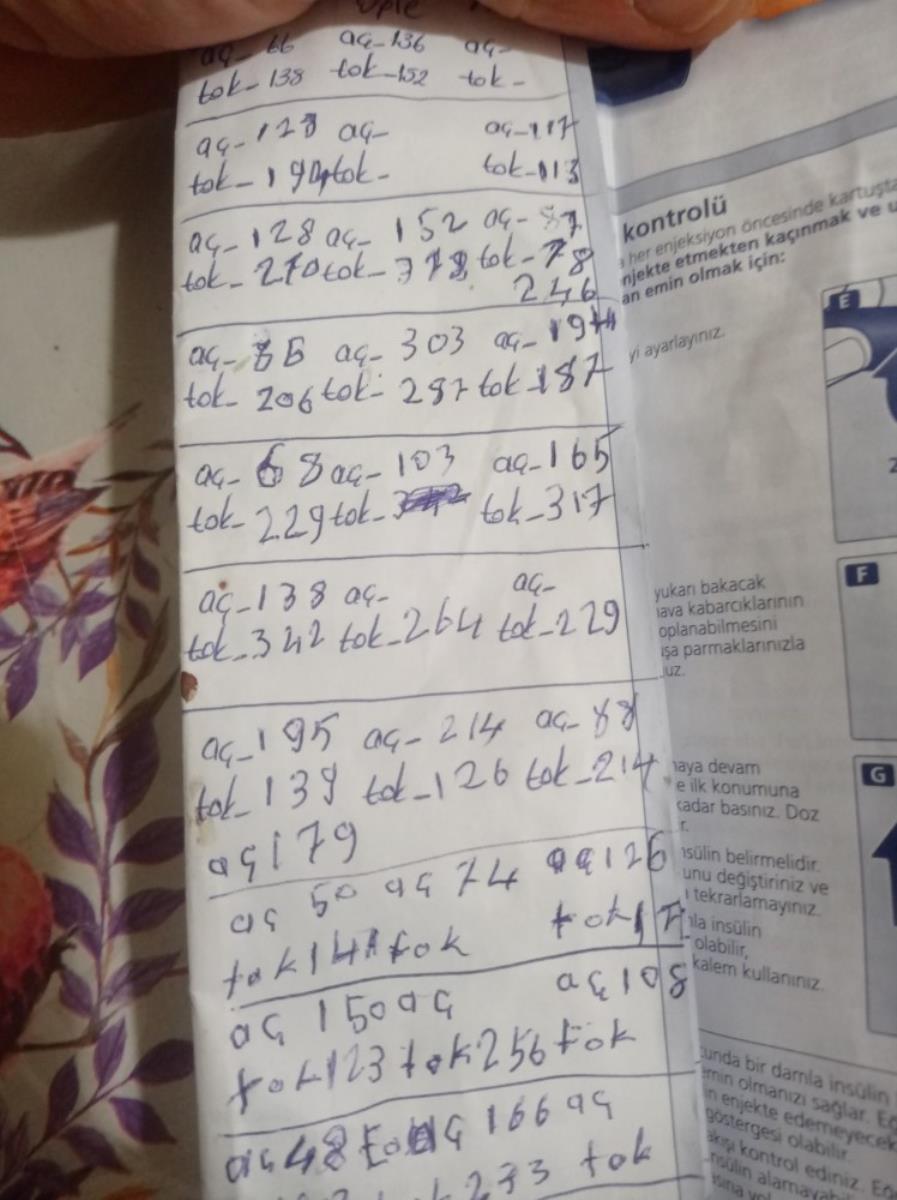 öğle
aç-66 aç-136 aç-
tok-138 tok-152 tok-
aç-128 aç- aç-117
tok-194 tok- tok-113
aç-128 aç-152 aç-87
tok-270 tok-378 tok-78
246
aç- aç-303 aç-194
tok-206 tok-287 tok-187
aç-68 aç-103 aç-165
tok-229 tok- tok-317
aç-138 aç- aç-
tok-342 tok-264 tok-229
aç-195 aç-214 aç-88
tok-139 tok-126 tok-214
aç 179
aç 50 aç 74 aç 126
tok 147 tok tok 17
aç 150 aç aç 108
tok 123 tok 256 tok
aç 48 aç 166 aç
273 tok
kontrolü
her enjeksiyon öncesinde kartuşta
njekte etmekten kaçınmak ve u
an emin olmak için:
yi ayarlayınız.
E
yukarı bakacak
hava kabarcıklarının
oplanabilmesini
şa parmaklarınızla
uz.
F
naya devam
e ilk konumuna
kadar basınız. Doz
r.
G
nsülin belirmelidir.
unu değiştiriniz ve
tekrarlamayınız.
la insülin
olabilir,
kalem kullanınız.
unda bir damla insülin
emin olmanızı sağlar. Eğ
n enjekte edemeyecek
göstergesi olabilir.
kontrol ediniz. Eğ
nsülin alamay